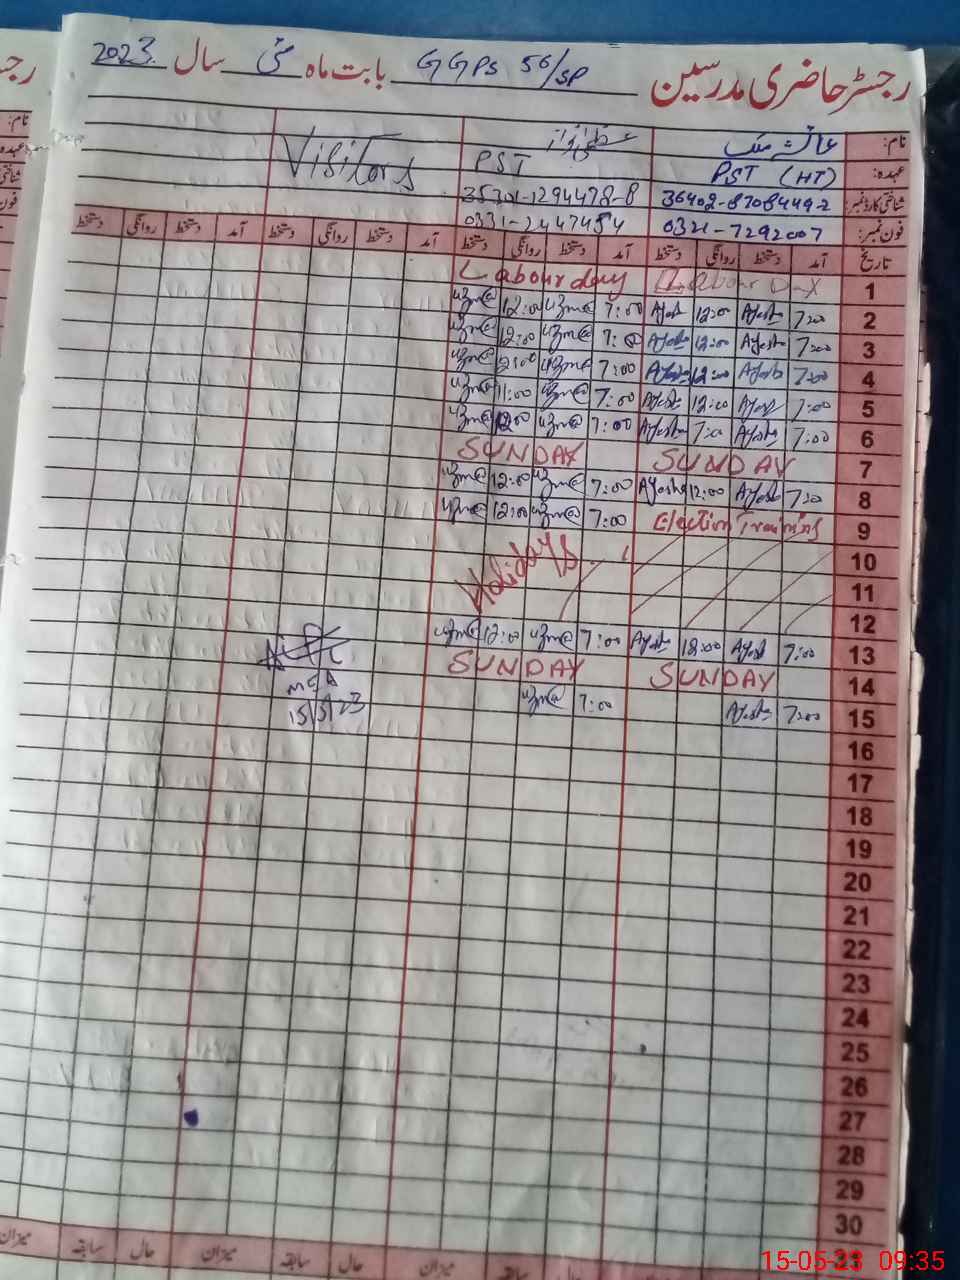 رجسٹر حاضری مدرسین GGPS 56/SP بابت ماہ مئی سال 2023
نام: عائشہ ملک
عہدہ: PST (HT) PST Visitors
شناختی کارڈ نمبر: 36402-8708449-2 35301-1294478-8
فون نمبر: 0321-7292007 0331-2447454
تاریخ آمد دستخط روانگی دستخط آمد دستخط روانگی دستخط آمد دستخط روانگی دستخط آمد دستخط روانگی دستخط
1 Labour Day Labour day
2 7:00 Ayesha 12:00 Ayesha 7:00 uzma 12:00 uzma
3 7:00 Ayesha 12:00 Ayesha 7:00 uzma 12:00 uzma
4 7:00 Ayesha 12:00 Ayesha 7:00 uzma 12:00 uzma
5 7:00 Ayesha 12:00 Ayesha 7:00 uzma 11:00 uzma
6 7:00 Ayesha 7:00 Ayesha 7:00 uzma 12:00 uzma
7 SUNDAY SUNDAY
8 7:00 Ayesha 12:00 Ayesha 7:00 uzma 12:00 uzma
9 Election Training 7:00 uzma 12:00 uzma
10 Holidays
11
12
13 7:00 Ayesha 12:00 Ayesha 7:00 uzma 12:00 uzma
14 SUNDAY SUNDAY
15 7:00 Ayesha 7:00 uzma
MEA
15/5/23
16
17
18
19
20
21
22
23
24
25
26
27
28
29
30
31
میزان حال سابقہ میزان حال سابقہ میزان
15-05-23 09:35